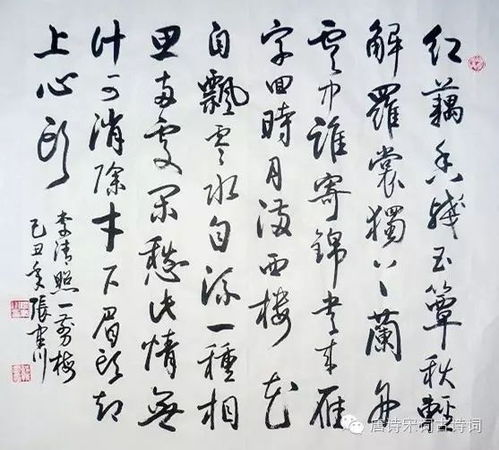 红藕香残玉簟秋輕
解羅裳獨上蘭舟
雲中誰寄錦書来雁
字回時月满西樓花
自飄零水自流一種相
思两處闲愁此情無
计可消除才下眉头却
上心头
李清照一剪梅
己丑年張川
唐诗宋词古诗词